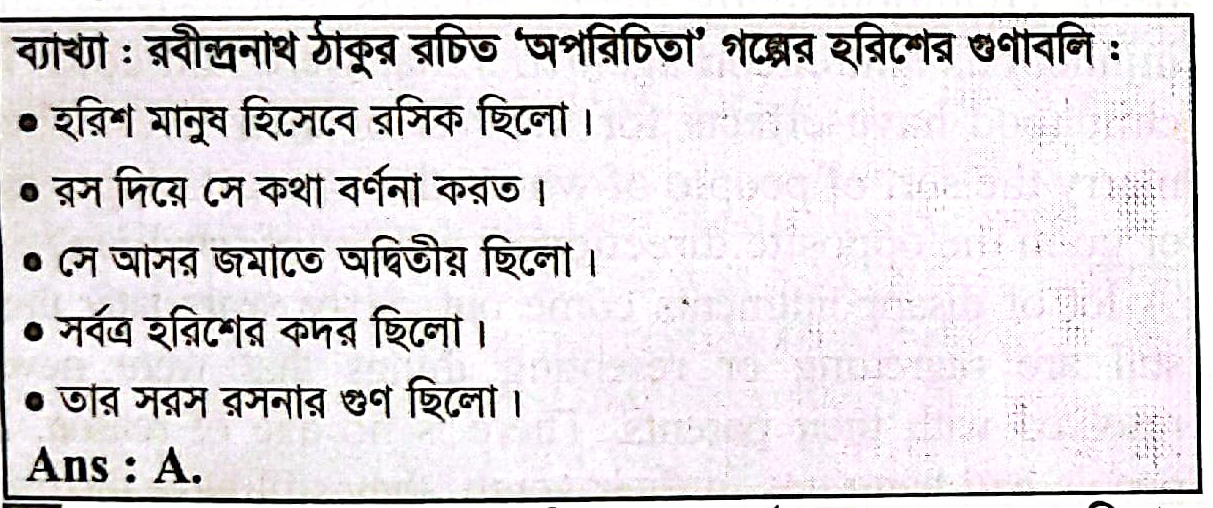 ব্যাখ্যা : রবীন্দ্রনাথ ঠাকুর রচিত ‘অপরিচিতা’ গল্পের হরিশের গুণাবলি :
● হরিশ মানুষ হিসেবে রসিক ছিলো।
● রস দিয়ে সে কথা বর্ণনা করত।
● সে আসর জমাতে অদ্বিতীয় ছিলো।
● সর্বত্র হরিশের কদর ছিলো।
● তার সরস রসনার গুণ ছিলো।
Ans : A.